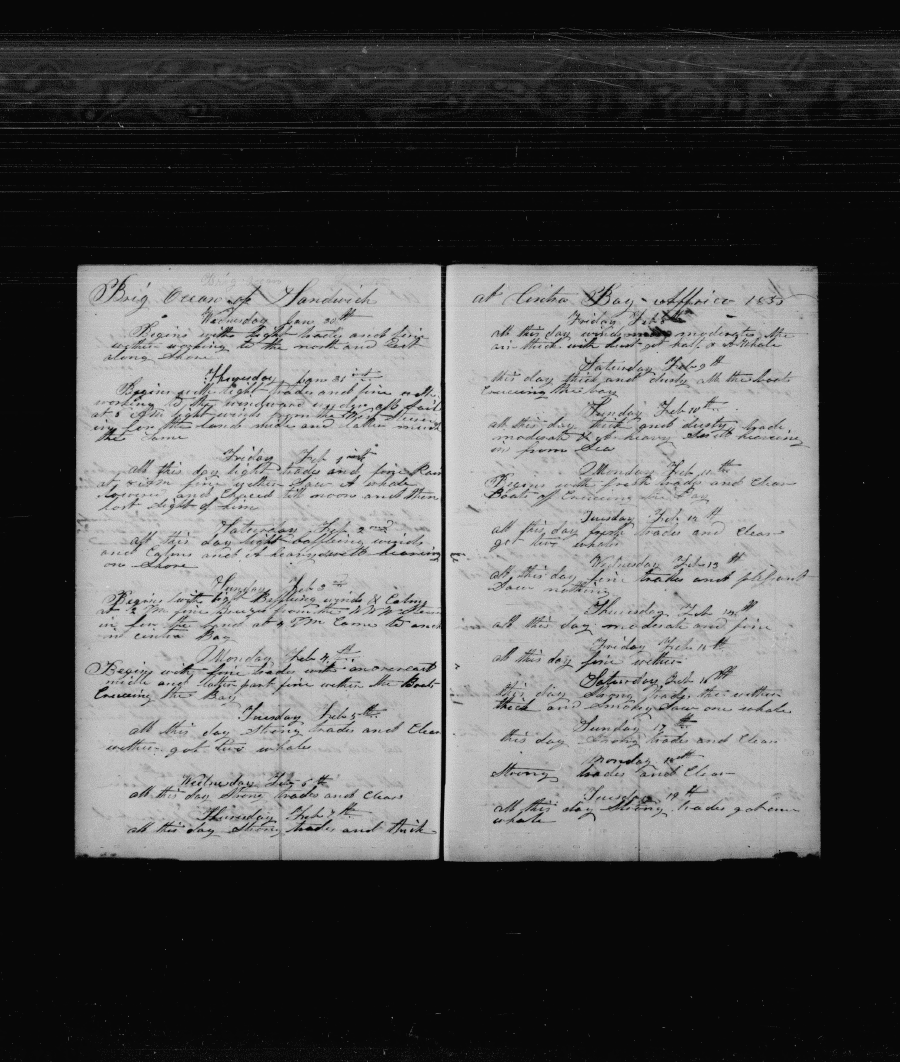 Brig Ocean of Sandwich
Wednesday Jan 30th
Begins with light trads and fine
wether working to the north and East
along shore
Thursday Jan 31
Begins with light trades and fine
working to the windward
at 3 PM light winds from the
in for the land midle and latter much
the same
Friday Feb 1
all this day light trades and fine
at fine wether saw A whale
lowerd and chaced till noon and then
lost sight of him
Saturday Feb 2nd
all this day light baffleing winds
and calms and A heavy swell heaveing
on shore
Sunday Feb 3
Begins with light Baffleing winds & Calms
at 2 PM fine Breeze from the NNW
in for the land at 9 PM Came to
in cintra Bay
Monday Feb 4th
Begins with fine trades with an overcast
midle and latter part fine wether the Boats
Cruceing the Bay
Tuesday Feb 5th
all this day Strong trades and Clear
wether got two whales
Wednesday Feb 6th
all this day Strong trades and Clear
Thursday Feb 7th
all this day Strong trades and thick
at Cintra Bay Affrica 183
Friday Feb 8th
all this day winds moderate the
air thick with dust got half A whale
Saturday Feb 9th
this day thick and dusty all the boats
Cruceing the bay
Sunday Feb 10th
all this day thick and dusty trads
moderate & heavy swell heaveing
in from Sea
Monday Feb 11th
Begins with fresh trads and Clear
Boats off Cruceing the Bay
Tuesday Feb 12th
all this day fresh trades and Clear
got two whales
Wednesday Feb 13th
all this day fine trades and plesant
Saw nothing
Thursday Feb 14th
all this day moderate and fine
Friday Feb 15th
all this day fine wether
Saturday Feb 16th
this day Strong trads the wether
thick and Smokey Saw one whale
Sunday 17th
this day Strong trades and Clear
Monday 18th
Strong trads and Clear
Tuesday 19th
all this day Strong trades got one
whale